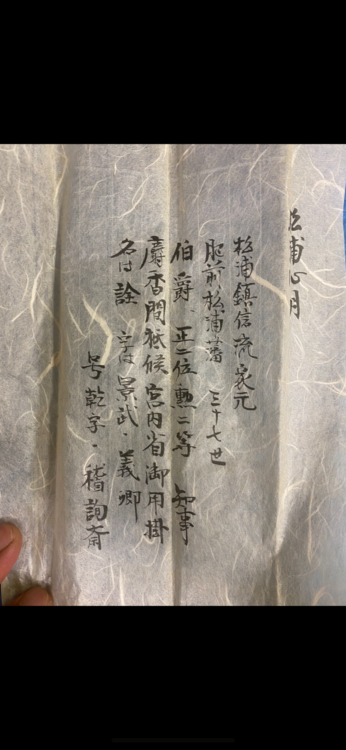 松浦心月
松浦鎮信流家元
肥前松浦藩 三十七世
伯爵、正二位勲二等 知事
麝香間祗候宮内省御用掛
名は詮 字は景武・義卿
号乾字・稽詢斎